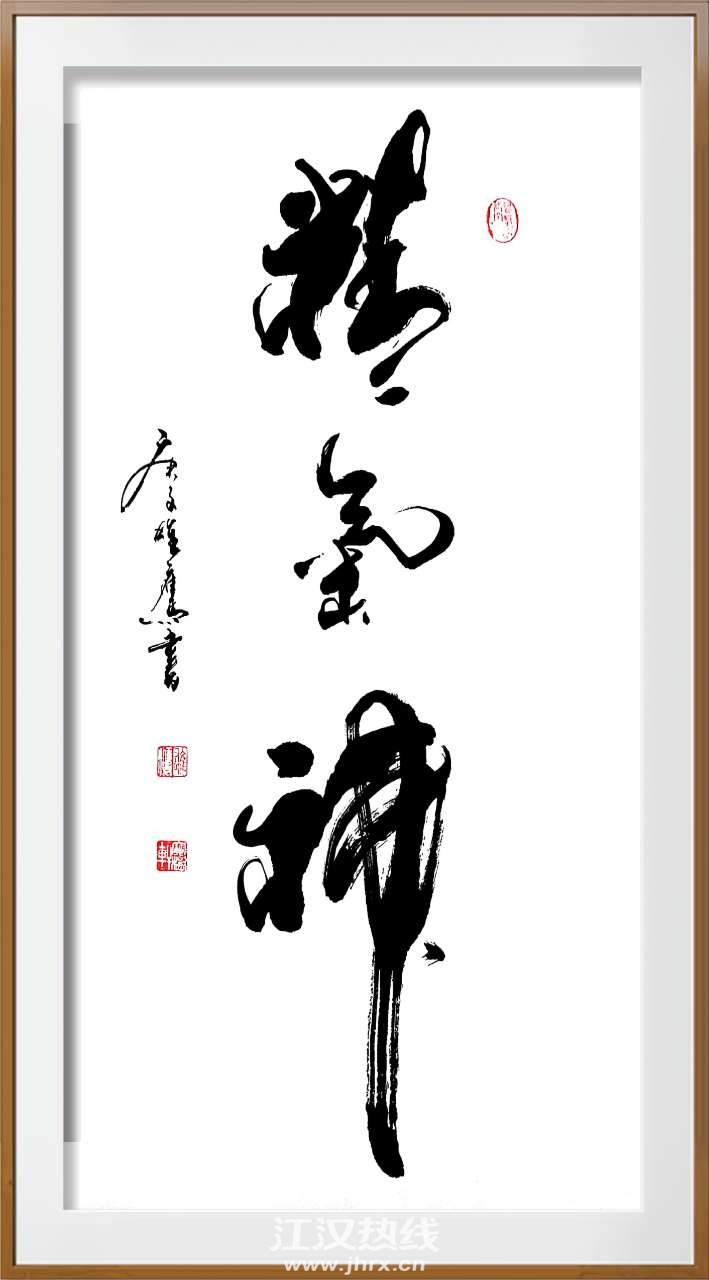 精氣神
庚子雄鷹書
江汉热线
www.jhrx.cn